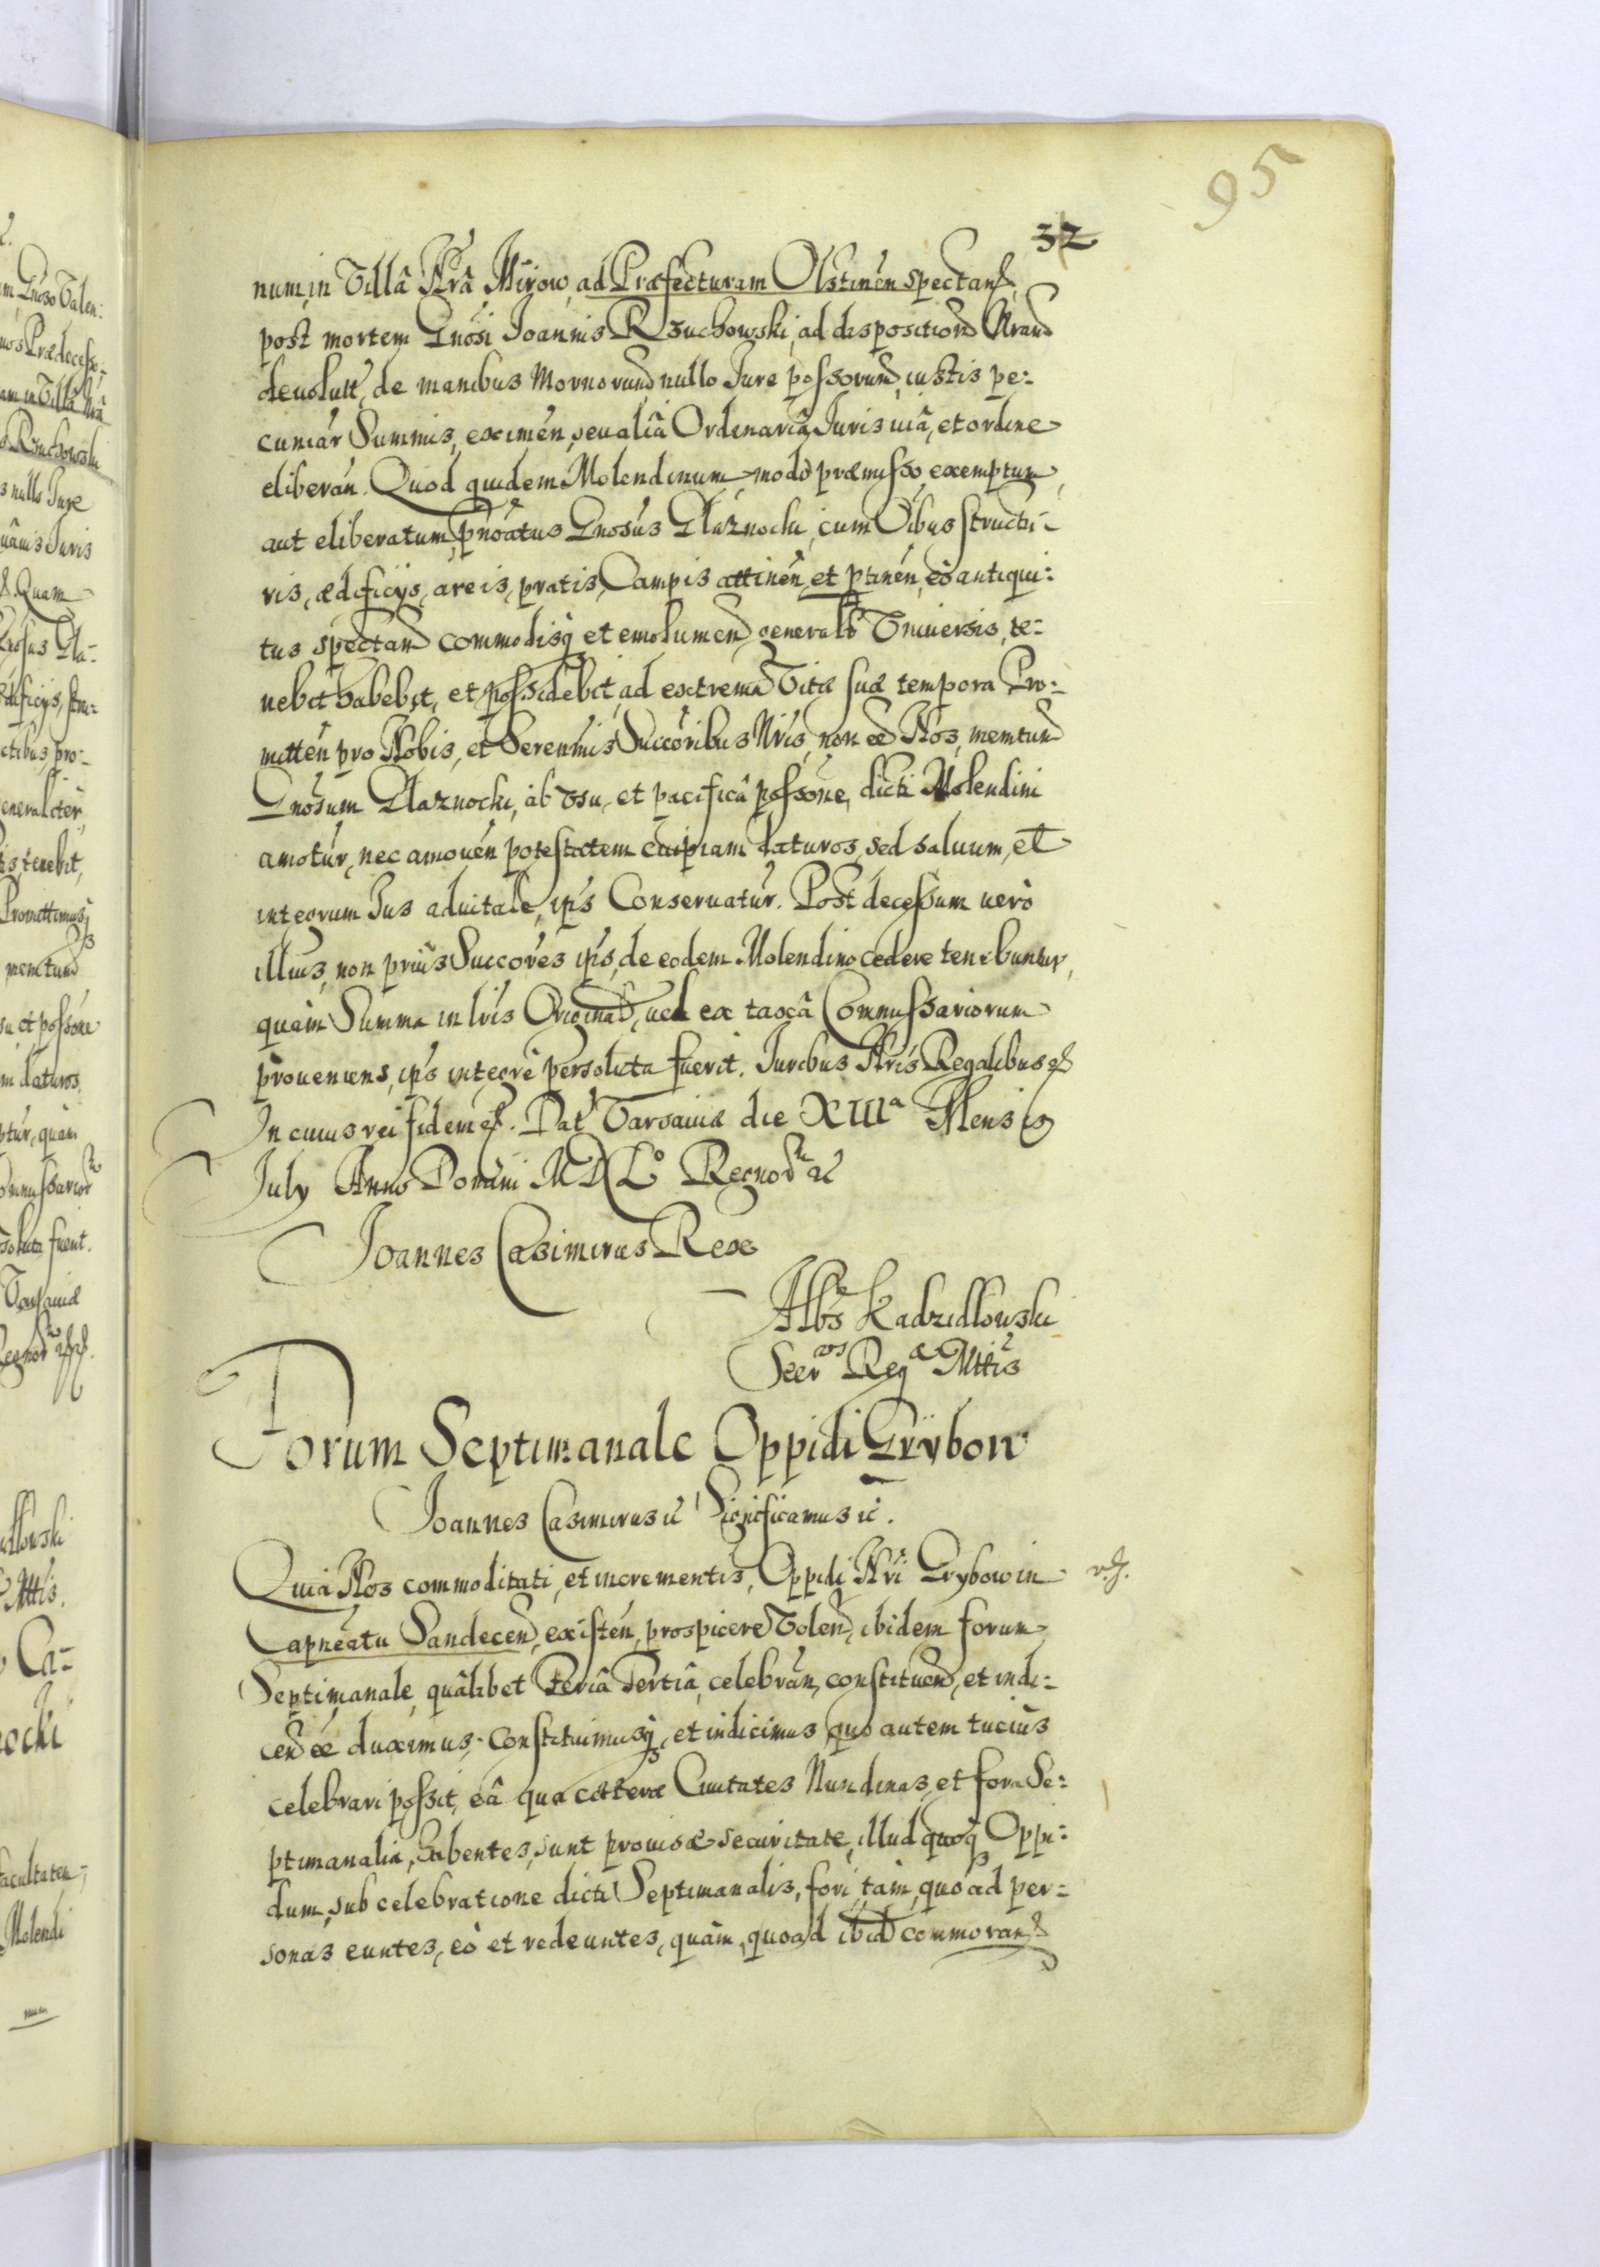 95
32
num, in Villâ Nrâ Mirow, ad Præfecturam Olstinen spectan,
post mortem Gnosi Joannis Rzuchowski, ad disposition Nram
devolut, de manibus Mornorum nullo Jure possorum, iustis pe:
cuniar Summis, eximen, seu aliâ Ordinariâ Juris uiâ, et ordine
eliberan. Quod quidem Molendinum modo præmisso, exemptum,
aut eliberatum, pnoatus Gnosus Glaznocki, cum Oibus structu-
ris, ædificijs, areis, pratis, Campis attinen, et ptinen, eò antiqui:
tus spectan commodisq et emolumen generalr Universis, te:
nebit habebit, et possidebit, ad extrema Vitæ suæ tempora Pro:
mitten pro Nobis, et Serenmis Succoribus Nris, non ee Nos, memtum
Gnosum Glaznocki, ab usu, et pacificâ possone, dicti Molendini
amotur, nec amouen potestatem cuipiam daturos, sed saluum, et
integrum Jus aduitale, ipsi Conseruatur. Post decessum uerò
illius, non prius Succores ipsi, de eodem Molendino cedere tenebuntur,
quàm Summa in lris Original, uel ex taxâ Commissariorum
proueniens, ipsi integrè persoluta fuerit. Juribus Nris Regalibus &
In cuius rei fidem &. Dat Varsauiæ die XIIIa Mensis
July Anno Domini MDCLo Regnor &c
Joannes Casimirus Rex
Albs Kadzidlowski
Secrus Regæ Mttis
Forum Septimanale Oppidi Grybow
Joannes Casimirus &c Significamus &c.
Quia Nos commoditati, et incrementis, Oppidi Nri Grybow in
Capneatu Sandecen, existen, prospicere Volen, ibidem forum
Septimanale, quâlibet Feriâ Tertiâ, celebran, constituen, et indi:
cen ee duximus. Constituimusq, et indicimus quo autem tuciùs
celebrari possit, eâ qua cæteræ Ciuitates Nundinas, et fora Se:
ptimanalia, habentes, sunt prouisæ securitate, illud quoq Oppi:
dum, sub celebratione dicti Septimanalis, fori, tàm, quoad per:
sonas euntes, eò et redeuntes, quàm, quoad ibid commoran